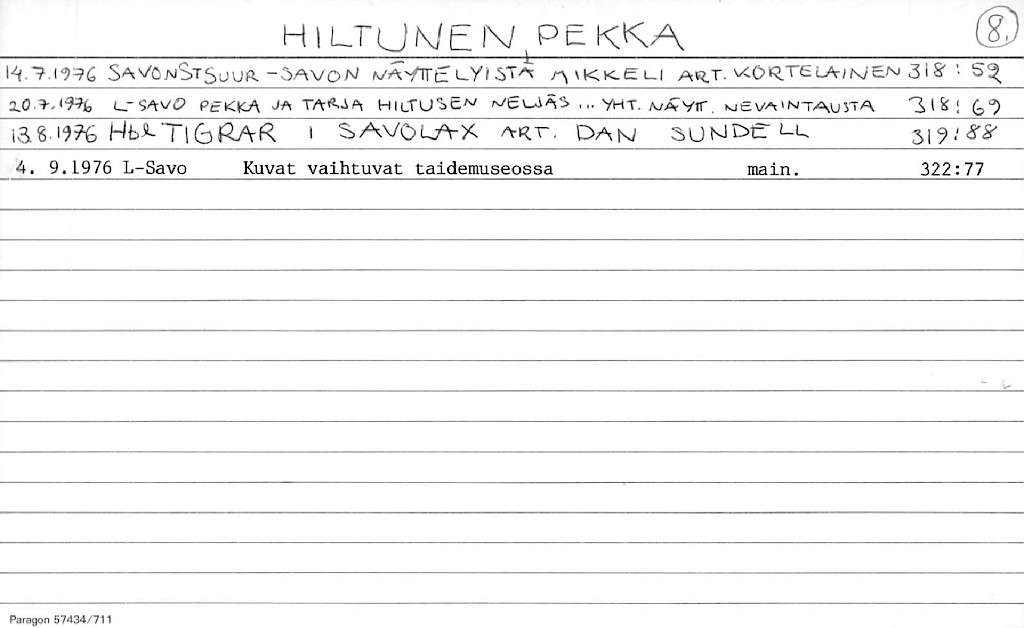 HILTUNEN, PEKKA
8.
14.7.1976 SAVONST SUUR-SAVON NÄYTTELYISTÄ MIKKELI ART. KORTELAINEN 318:59
20.7.1976 L-SAVO PEKKA JA TARJA HILTUSEN NELJÄS... YHT. NÄYTT. NEVAINTAUSTA 318:69
13.8.1976 Hbl TIGRAR I SAVOLAX ART. DAN SUNDELL 319:88
4. 9.1976 L-Savo Kuvat vaihtuvat taidemuseossa main. 322:77
Paragon 57434/711